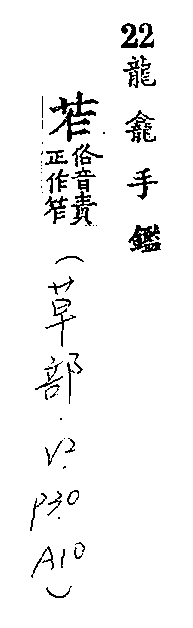 22龍龕手鑑
苲
俗音責
正作笮
(草部.V2.P30.A10)